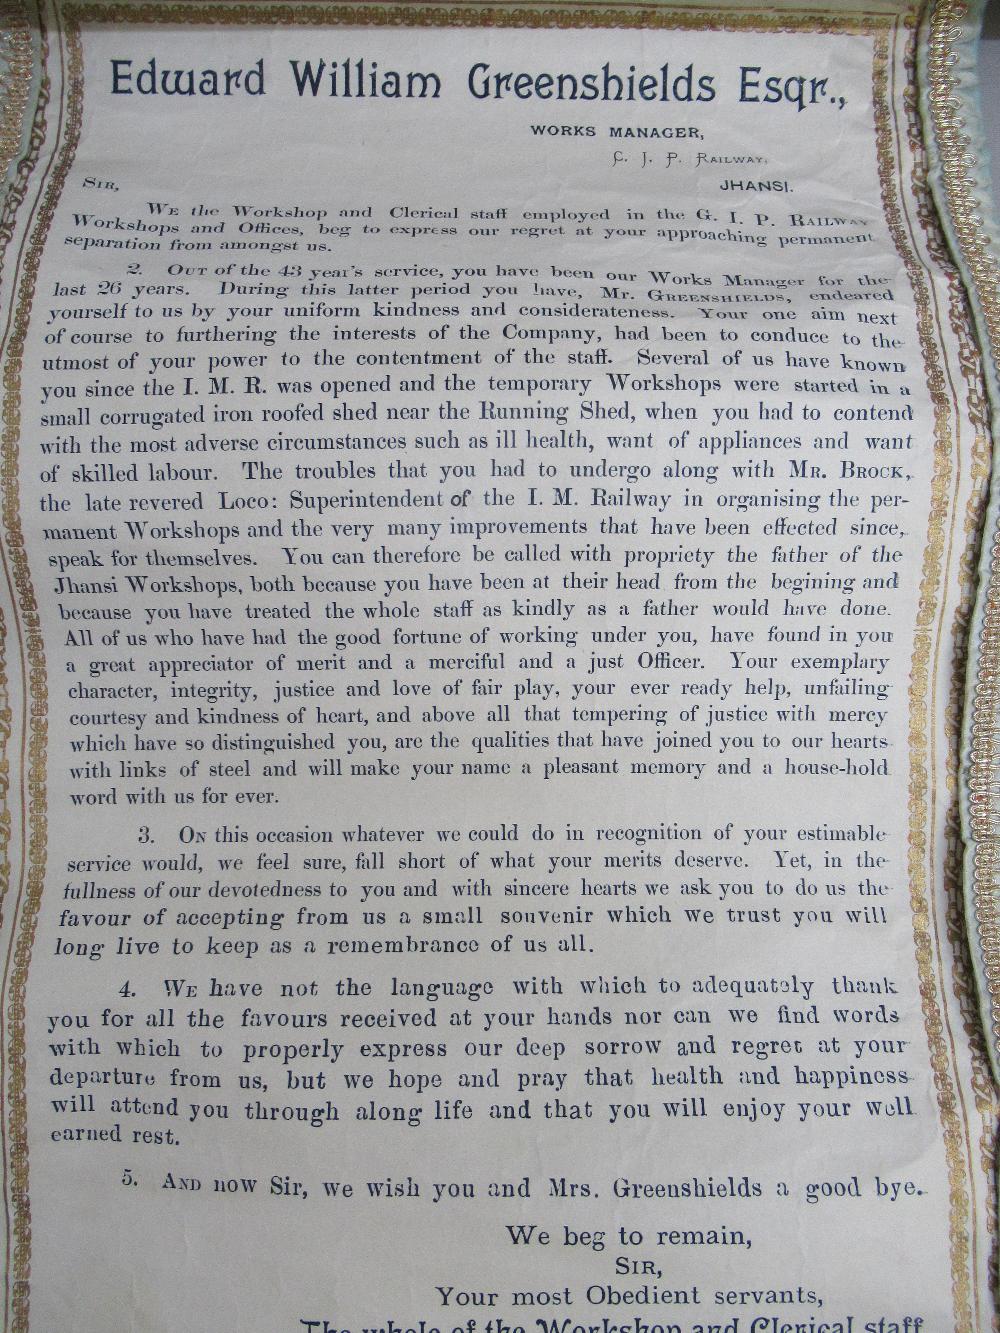 Edward William Greenshields Esqr.,
WORKS MANAGER,
G. I. P. RAILWAY,
JHANSI.
SIR,
WE the Workshop and Clerical staff employed in the G. I. P. RAILWAY
Workshops and Offices, beg to express our regret at your approaching permanent
separation from amongst us.
2. OUT of the 43 year's service, you have been our Works Manager for the
last 26 years. During this latter period you have, Mr. GREENSHIELDS, endeared
yourself to us by your uniform kindness and considerateness. Your one aim next
of course to furthering the interests of the Company, had been to conduce to the
utmost of your power to the contentment of the staff. Several of us have known
you since the I. M. R. was opened and the temporary Workshops were started in a
small corrugated iron roofed shed near the Running Shed, when you had to contend
with the most adverse circumstances such as ill health, want of appliances and want
of skilled labour. The troubles that you had to undergo along with MR. BROCK,
the late revered Loco: Superintendent of the I. M. Railway in organising the per-
manent Workshops and the very many improvements that have been effected since,
speak for themselves. You can therefore be called with propriety the father of the
Jhansi Workshops, both because you have been at their head from the begining and
because you have treated the whole staff as kindly as a father would have done.
All of us who have had the good fortune of working under you, have found in you
a great appreciator of merit and a merciful and a just Officer. Your exemplary
character, integrity, justice and love of fair play, your ever ready help, unfailing
courtesy and kindness of heart, and above all that tempering of justice with mercy
which have so distinguished you, are the qualities that have joined you to our hearts
with links of steel and will make your name a pleasant memory and a house-hold
word with us for ever.
3. ON this occasion whatever we could do in recognition of your estimable
service would, we feel sure, fall short of what your merits deserve. Yet, in the
fullness of our devotedness to you and with sincere hearts we ask you to do us the
favour of accepting from us a small souvenir which we trust you will
long live to keep as a remembrance of us all.
4. WE have not the language with which to adequately thank
you for all the favours received at your hands nor can we find words
with which to properly express our deep sorrow and regret at your
departure from us, but we hope and pray that health and happiness
will attend you through along life and that you will enjoy your well
earned rest.
5. AND now Sir, we wish you and Mrs. Greenshields a good bye.
We beg to remain,
SIR,
Your most Obedient servants,
The whole of the Workshop and Clerical staff